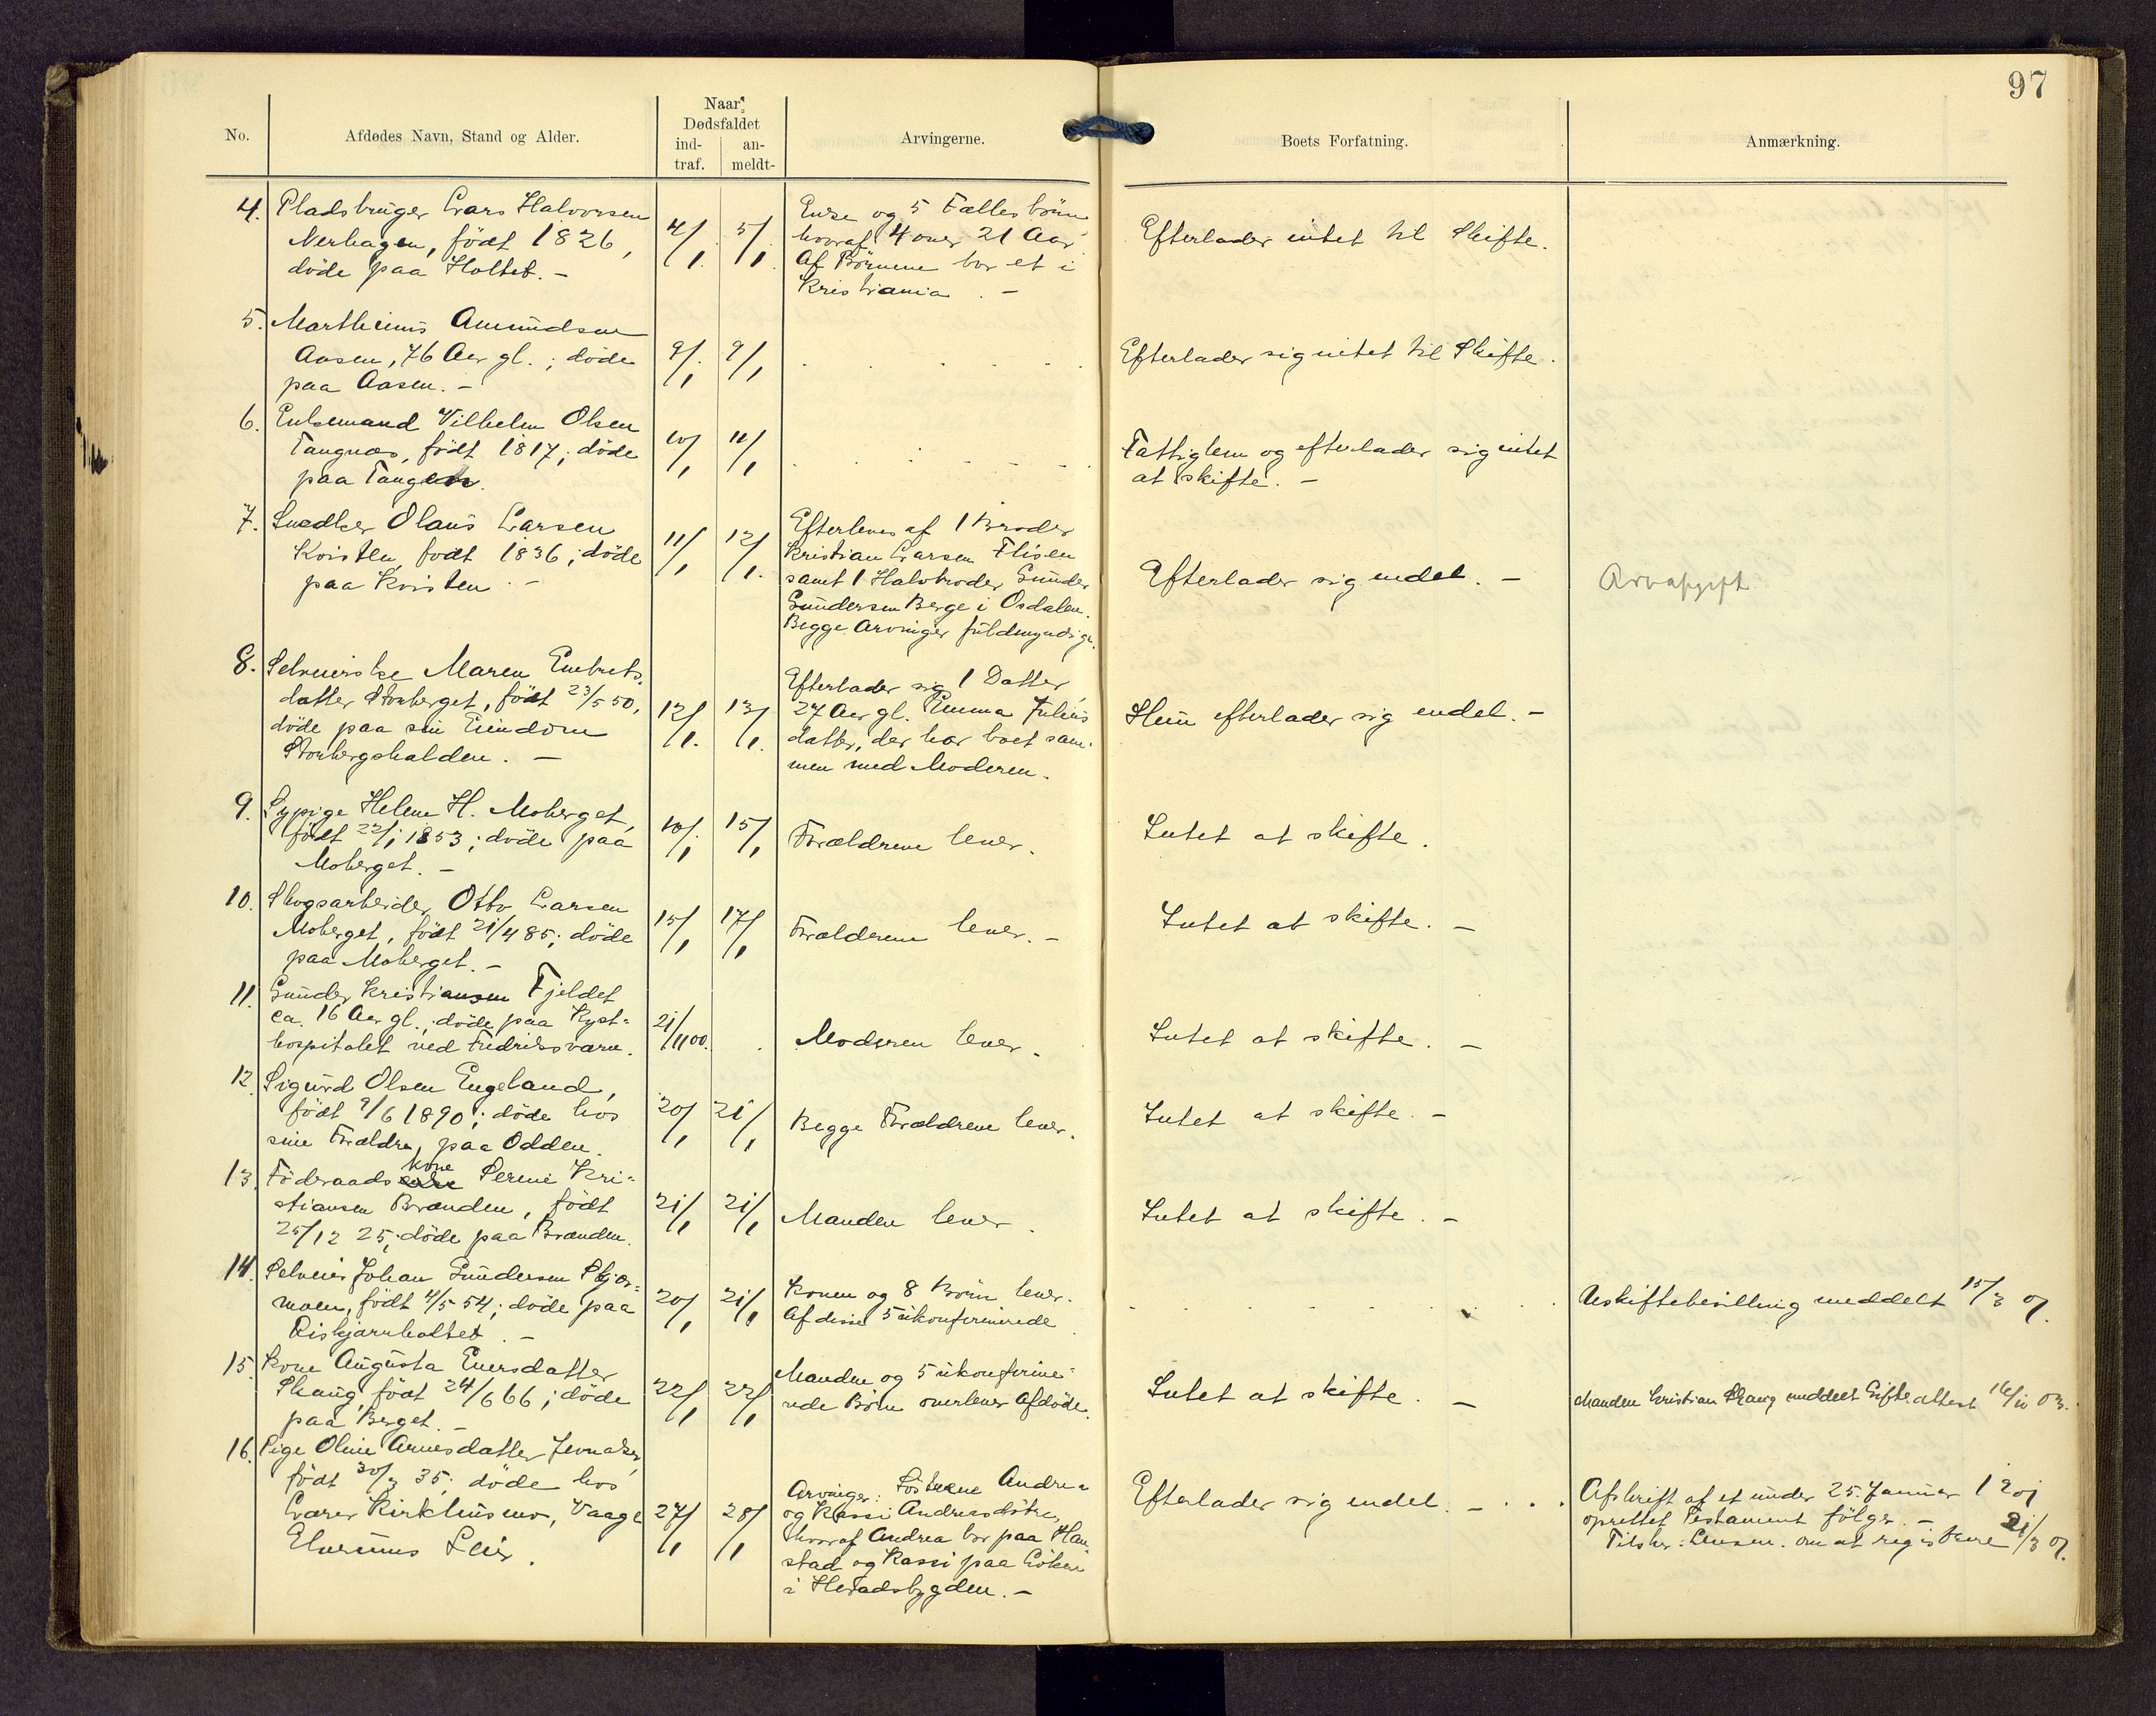 97
No.
Afdødes Navn, Stand og Alder.
Naar
Dødsfaldet
ind-
traf.
an-
meldt-
Arvingerne.
Boets Forfatning.
Anmærkning.
4. Pladsbruger Lars Halvorsen
Nerhagen, født 1826,
døde paa Holtet. -
4/1. 5/1
Enke og 5 Fællesbörn
hvoraf 4 over 21 Aar
Af Börnene bor et i
Kristiania. -
Efterlader intet til Skifte.
5. Marthinus Amundsen
Aasen, 76 Aar gl.; døde
paa Aasen. -
9/1 9/1
Efterlader sig intet til Skifte.
6. Enkemand Vilhelm Olsen
Tangnæs, født 1817; døde
paa Tangen.
10/1 11/1
Fattiglem og efterlader sig intet
at skifte. -
7. Snedker Olaus Larsen
Kvisten, født 1836; døde
paa Kvisten. -
11/1 12/1.
Efterleves af 1 Broder
Kristian Larsen Flisen
samt 1 Halvbroder Gunder
Gundersen Berge i Osdalen.
Begge Arvinger fuldmyndige.
Efterlader sig endel. -
Arveafgift
8. Selveierske Maren Embrets-
datter Storberget, født 23/5 50,
døde paa sin Eiendom
Storbergshalden. -
12/1. 13/1.
Efterlader sig 1 Datter,
27 Aar gl. Emma Julius
datter, der har boet sam-
men med Moderen.
Hun efterlader sig endel. -
9. Sypige Helene H. Moberget,
født 22/1 1853; døde paa
Moberget. -
10/1 15/1
Forældrene lever.
Intet at skifte.
10. Skogsarbeider Otto Larsen
Moberget, født 21/4 85; døde
paa Moberget. -
15/1 17/1
Forældrene lever. -
Intet at skifte. -
11. Gunder Kristiansen Fjeldet
ca. 16 Aar gl.; døde paa Kyst-
hospitalet ved Fredriksværn.
21/11 00.
Moderen lever.
Intet at skifte. -
12. Sigurd Olsen Engeland,
født 9/6 1890; døde hos
sine Forældre, paa Odden.
20/1 21/1
Begge Forældrene lever.
Intet at skifte. -
kone
13. Föderaads Pernie Kri-
stiansen Branden, født
25/12 25; døde paa Branden.
21/1 21/1
Manden lever.
Intet at skifte. -
14. Selveier Johan Gundersen Skjær-
moen, født 4/5 54; døde paa
Riskjærnholtet. -
20/1 21/1
Konen og 8 Börn lever.
Af disse 5 ukonfirmerede
Uskiftebevilling meddelt 15/3 01.
15. Kone Augusta Evensdatter
Skaug, født 24/6 66; døde
paa Berget. -
22/1 22/1
Manden og 5 ukonfirme-
rede Börn overlever Afdøde.
Intet at skifte. -
Manden Kristian Skaug meddelt Gifteattest 16/10 03.
16. Pige Oline Arnesdatter Jevnaker,
født 30/3 35; døde hos
Lærer Kirkhusmo, Vaage
Elverums Leir.
27/1 28/1
Arvinger: Söstrene Andrea
og Kassi Andreasdötre,
hvoraf Andrea bor paa Han-
stad og Kassi paa Löken
i Heradsbygden. -
Efterlader sig endel. -
Afskrift af et under 25. Januar 1901
oprettet Testament følger. -
Tilskr. Lensm. om at registrere 21/3 01.